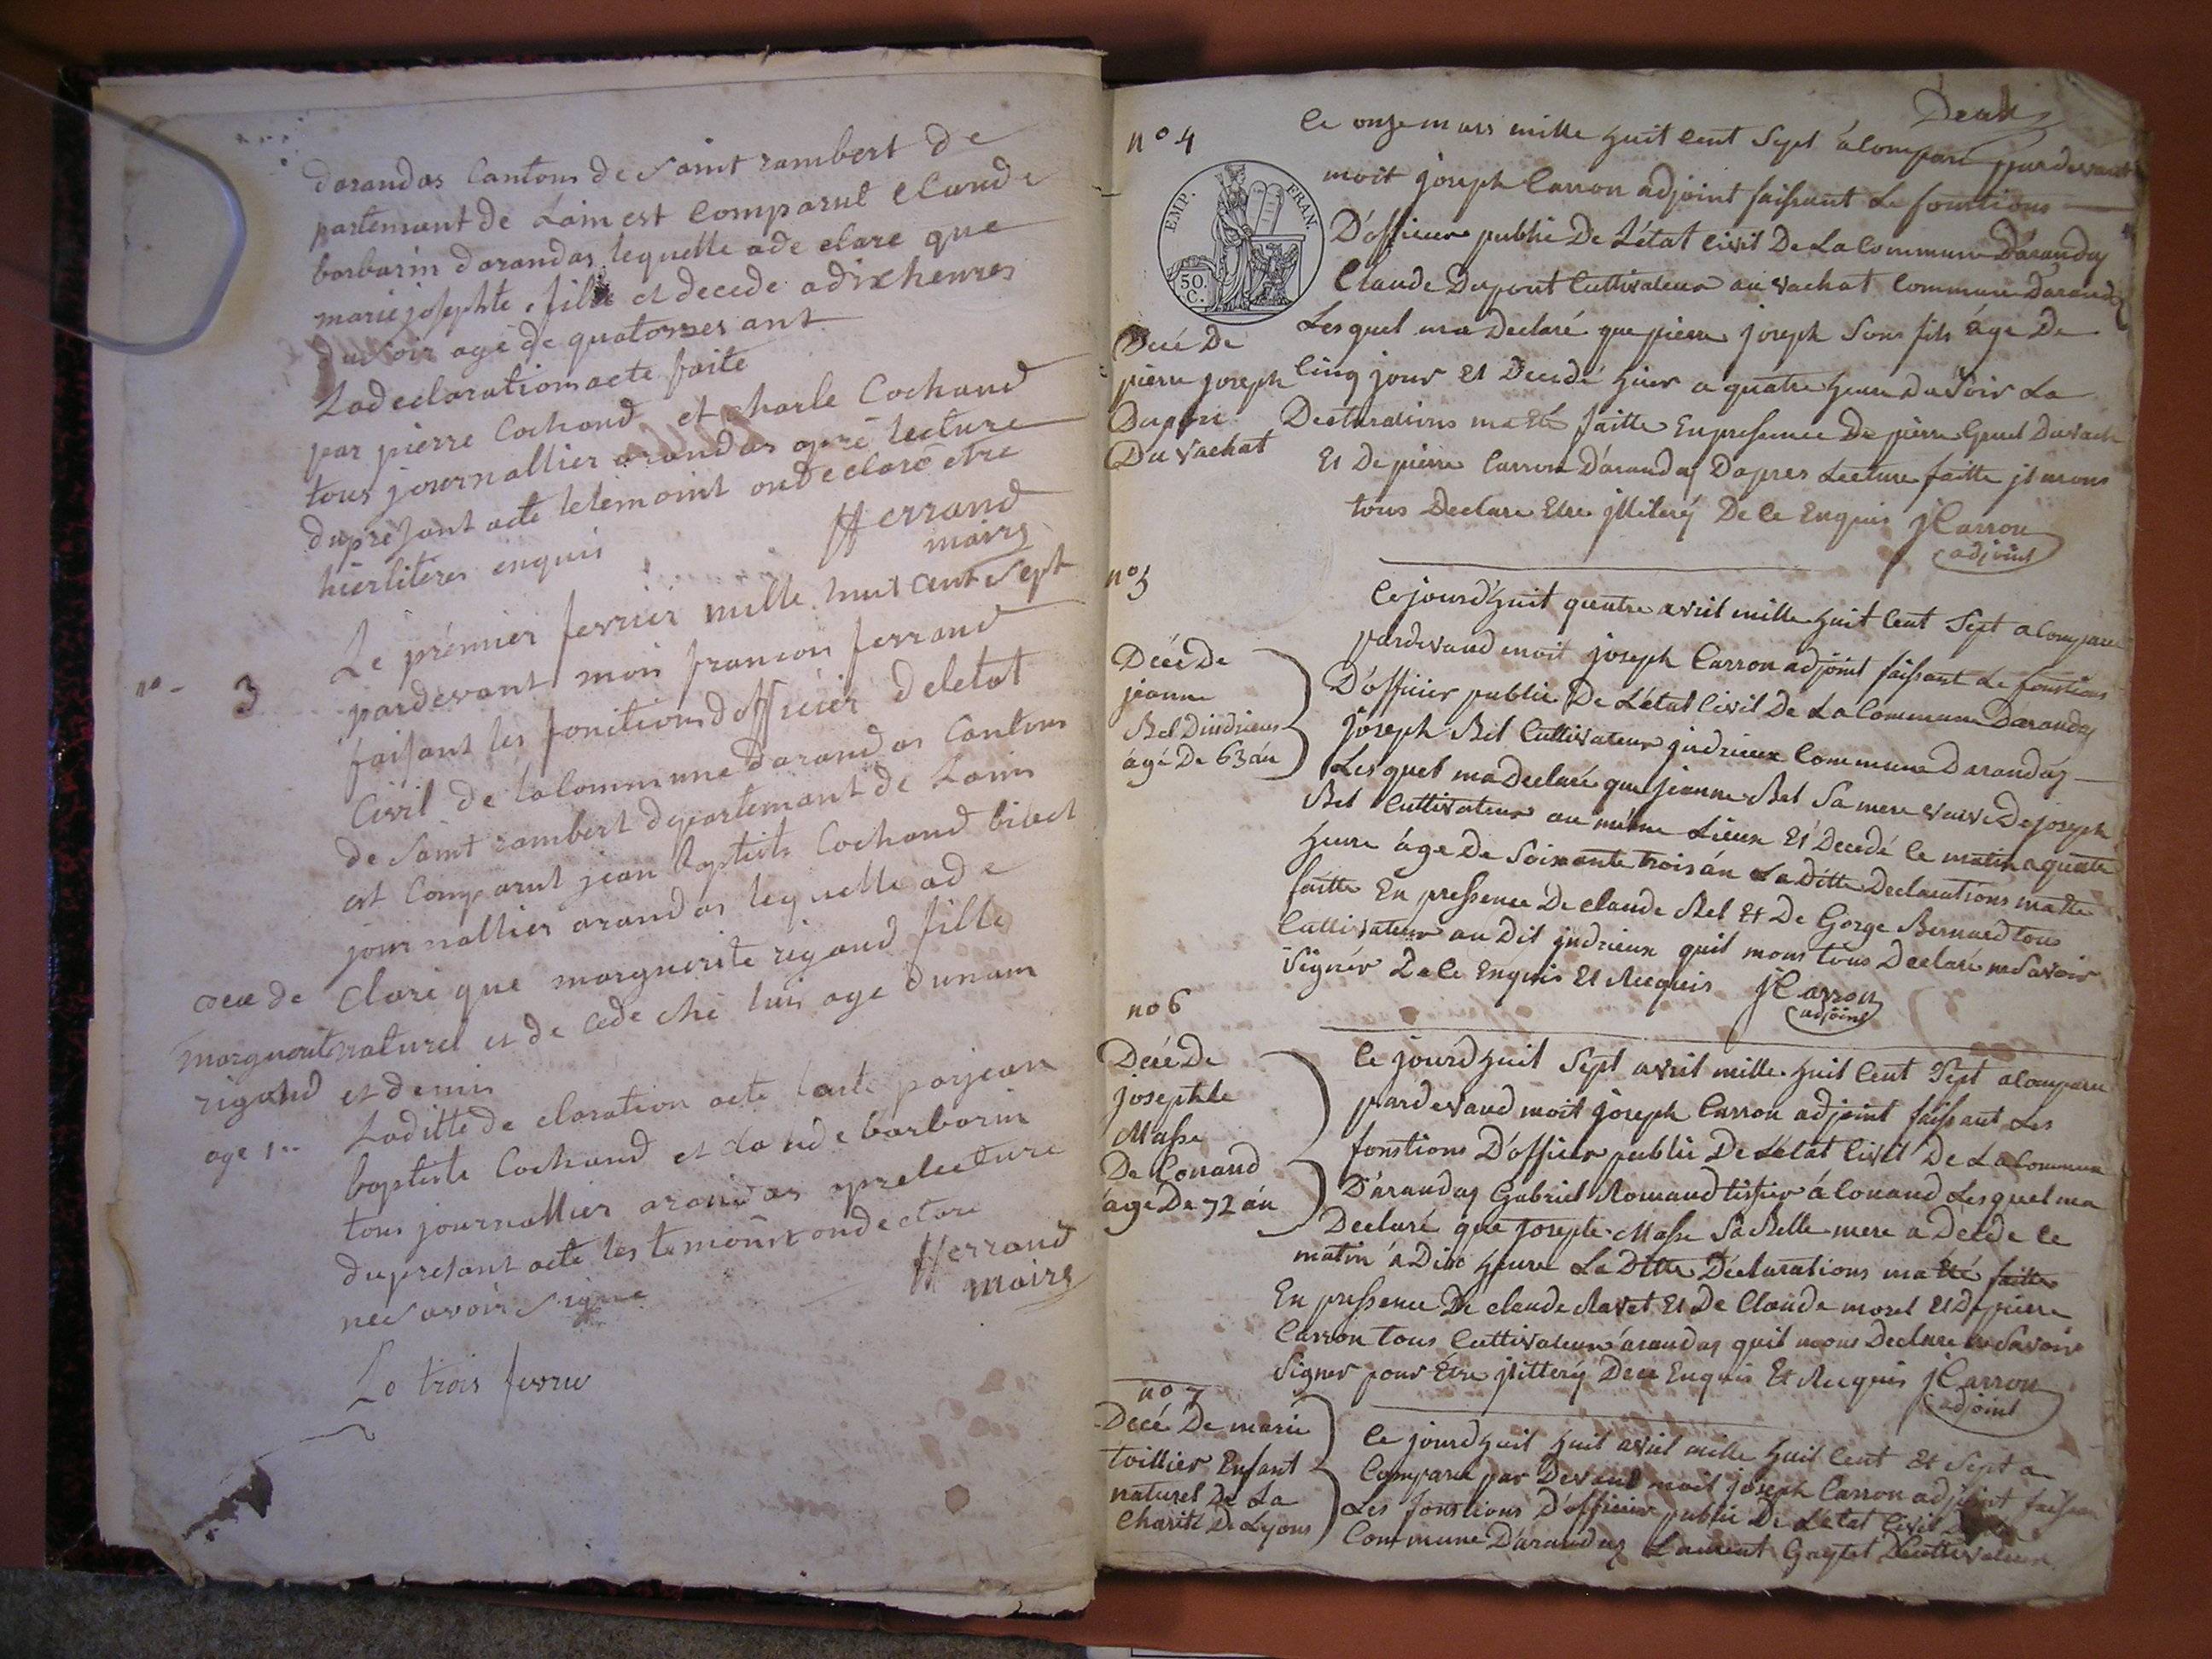 darandas Cantons de Saint rambert de
partemant de Lain est Comparut Claude
barbarin darandas lequelle ade clare que
marie josephte, fille et decede adixheures
du soir agé de quatorzes ant
Ladeclarations acte faite
par pierre Cochand et charle Cochand
tous journallier arandas apré lecture
duprésant acte letémoint ondeclaré etre
hierliteres enquis
fferrand
maire
n° - 3
Le prémier fevrier mille huit cent sept
pardevant moii francoii ferrand
faisant les fonctions dofficiér deletat
Civil de lalommune darandas Cantons
de Saint rambert departemant de Lains
est Comparut jean baptiste Cochand
journallier arandas lequelle ade
clare que marguerite rigaud fille
naturel et de cede ché luis age dunam
et demis
decé de
marguerite
rigaud
age 1..
Laditte de claration acte faite parjean
baptiste Cochand et claude barbarin
tous journallier arandas apre lecture
dupresant acte les temoint onde clare
ne savoir signe
fferrand
maire
Le trois fevrie
Deux
n° 4
EMP. FRAN.
50. C.
Ce onze mars mille huit Cent Sept à Comparu pardevant
moit joseph Carron adjoint faissant Le fonctions
D'officier public De L'état Civil De La Commune D'arandas
Claude Dupont Cultivateur au vachat Commune Darandas
Lesquel ma Declaré que pierre joseph Sons fils âge De
Cinq jour Et Decedé hier a quatre heure du Soir La
Declarations ma Eté faitte En pressence De pierre
Et De pierre Carron D'arandas Dapres Lecture faitte
tous Declare Etre jlliteré De Ce Enquis JCarron
adjoint
Decé De
pierre joseph
Dupon
Du vachat
n° 5
Ce jourd'huit quatre avril mille huit Cent Sept a Comparu
pardevand moit joseph Carron adjoint faissant Le fonctions
D'officier public De L'état Civil De La Commune Darandas
joseph Bel Cultivateur jndrieux Commune Darandas
Lesquel ma Declaré que jeanne Bel Sa mere veuve De joseph
Bel Cultivateur au même Lieux Et Decedé Ce matin a quatre
heure âge De Soixante trois ân La Ditte Declarations ma Eté
faitte En pressence De Claude Bel Et De Gorge Bernard tous
Cultivateur au Dit jndrieux quil mons tous Declaré ne Savoir
Signér De Ce Enquis Et Requis JCarron
adjoint
Décé De
jeanne
Bel Dindrieux
âgé De 63 ân
no 6
Ce jourdhuit Sept avril mille huit Cent Sept a Comparu
pardevand moit joseph Carron adjoint faissant Les
fonctions D'officier public De L'état Civil De La Commune
D'arandas Gabriel Romand tissier à Conand Lesquel ma
Declaré que josepte Masse Sa Belle mere a Decede Ce
matin à Dix heure La Ditte Déclarations ma Eté faitte
En pressence De claude Ravet Et De Claude morel Et De pierre
Carron tous Cultivateur arandas quil mons Declare ne Savoir
Signer pour Être jlitteré De Ce Enquis Et Requis JCarron
adjoint
Décé De
josephte
Masse
De Conand
âgé De 72 ân
no 7
Decé De marie
toillier Enfant
naturel De La
Charité De Lyons
Ce jourdhuit huit avril mille huit Cent Et Sept a
Comparu par Devand moit joseph Carron adjoint faissan
Les fonctions D'officier public De L'état Civil De La
Commune D'arandas Laurent Cultivateur